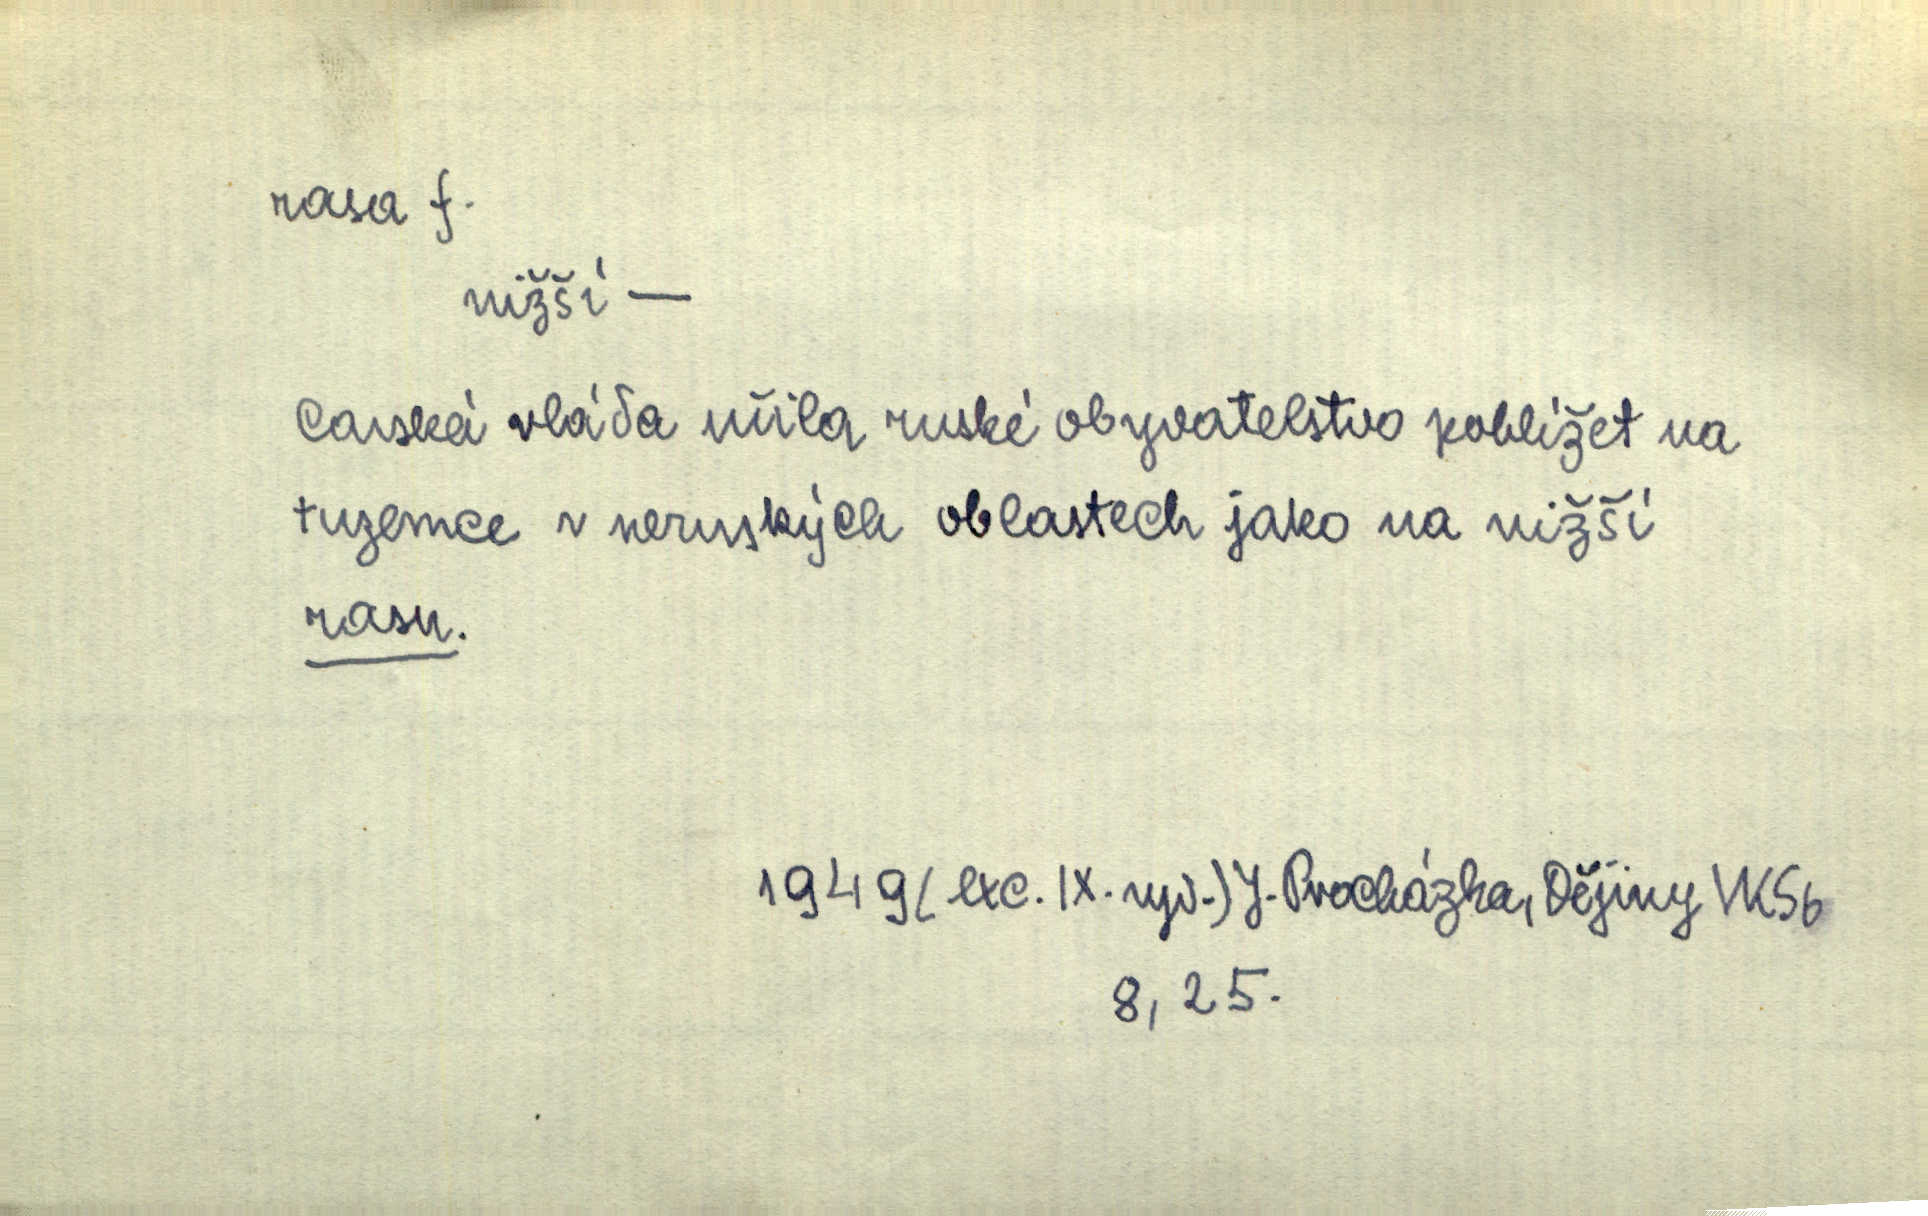 rasa f.
nižší —
Carská vláda učila ruské obyvatelstvo pohlížet na
tuzemce v neruských oblastech jako na nižší
rasu.
1949 (exc. IX. vyd.) J. Procházka, Dějiny VKSb
8, 25.